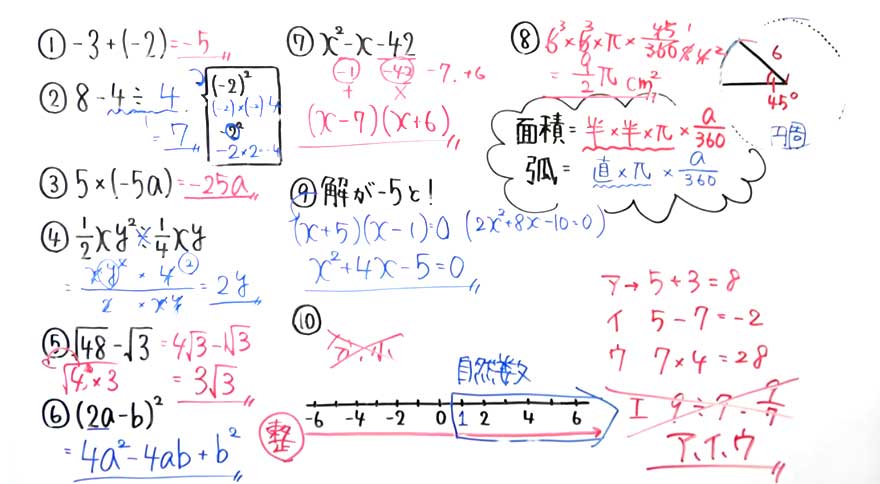 ① -3+(-2)=-5
② 8-4÷4
=7
(-2)²
(-2)×(-2) 4
-2²
-2×2 -4
③ 5×(-5a)=-25a
④ 1/2xy²÷1/4xy
= xy² × 4 / 2 × xy = 2y
⑤ √48-√3=4√3-√3
√4²×3 =3√3
⑥ (2a-b)²
=4a²-4ab+b²
⑦ x²-x-42
-1 -42 -7, +6
+ ×
(x-7)(x+6)
⑨ 解が-5と1
(x+5)(x-1)=0 (2x²+8x-10=0)
x²+4x-5=0
⑩
自然数
-6 -4 -2 0 1 2 4 6
整
⑧ 6×6×π×45/360
=9/2π cm²
6
45°
円周
面積=半×半×π×a/360
弧=直×π×a/360
ア→5+3=8
イ 5-7=-2
ウ 7×4=28
エ 9÷7=9/7
ア、イ、ウ